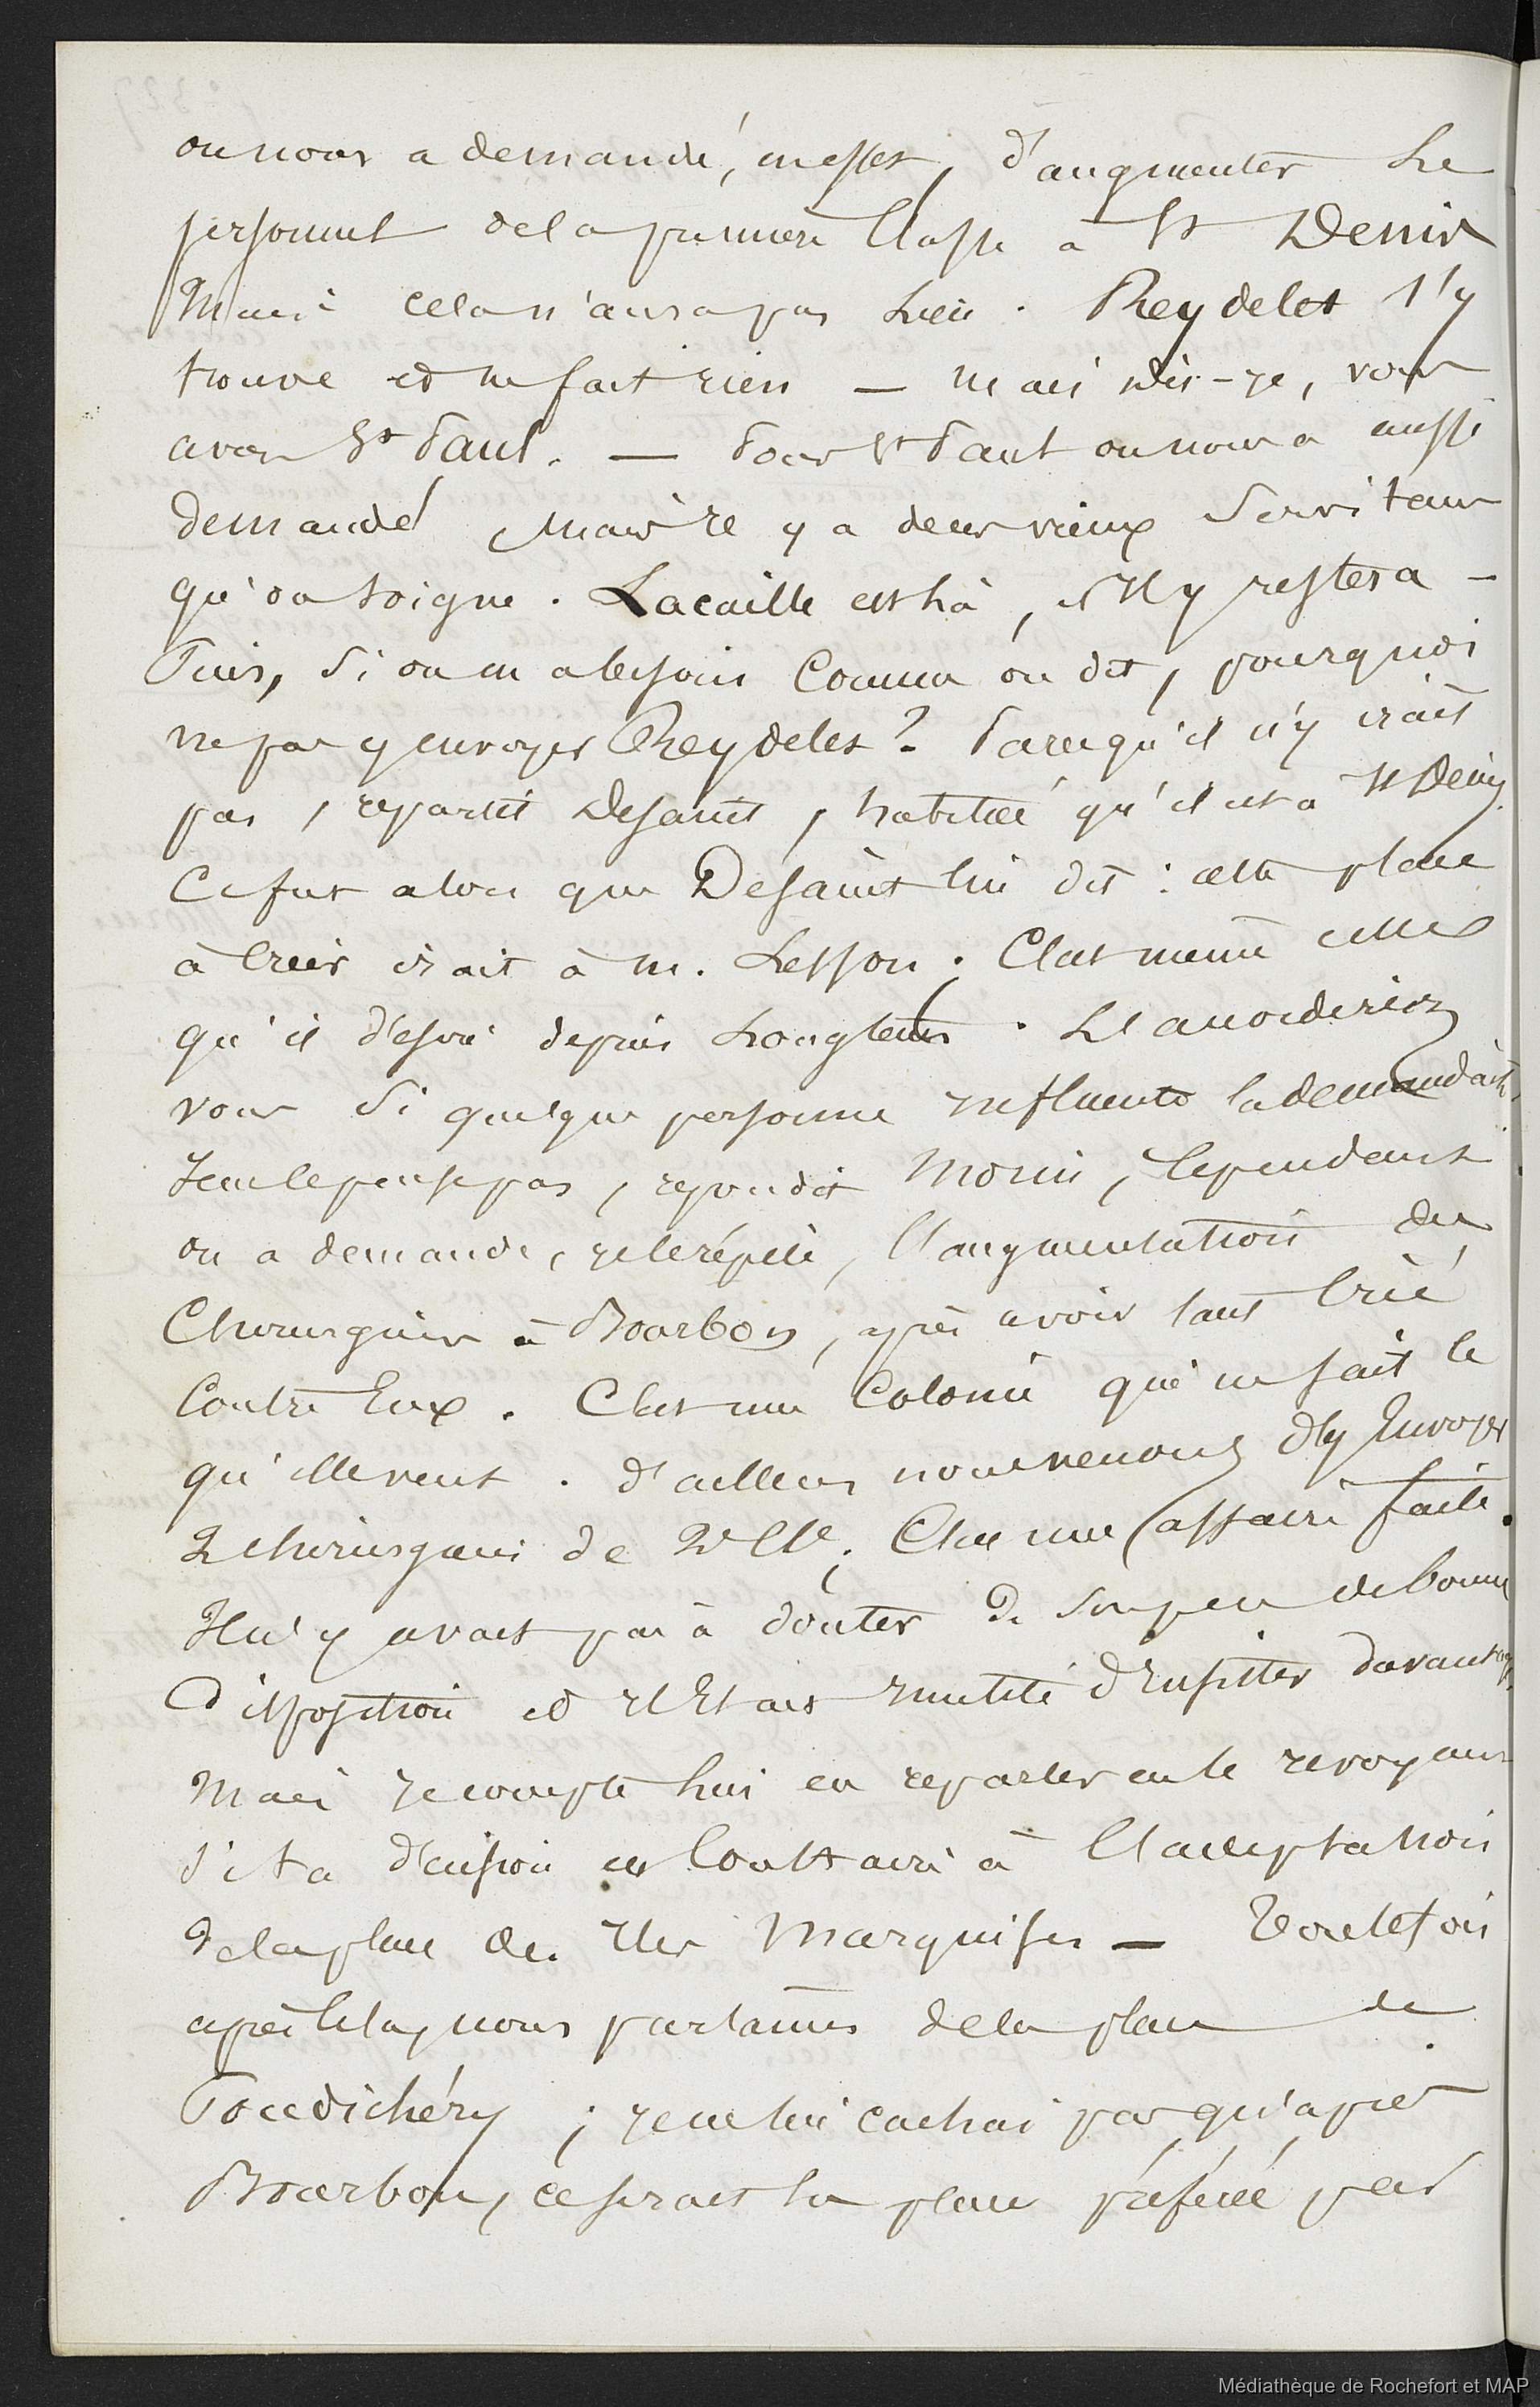 on nous a demandé, en effet, d'augmenter le
personnel de la première Classe à St Denis
Mais cela n'aura pas lieu. Reydelet s'y
trouve et ne fait rien — mais dis-je, vous
avez St Paul. — Pour St Paul on nous a aussi
demandé, mais il y a deux vieux Serviteurs
qu'on soigne. Lacaille est là, et Il y restera —
Puis, Si on en a besoin Comme on dit, pourquoi
ne pas y envoyer Reydelet? Parcequ'il n'y irait
pas, repartit Desaint, habitué qu'il est à St Denis
Ce fut alors que Desaint lui dit : cette place
à Créer irait à M. Lesson; C'est même celle
qu'il désire depuis Longtems. L'accorderiez
vous Si quelque personne Influente la demandait.
Je ne le pense pas, repondit Morin, Cependant
on a demandé, je le répète, l'augmentation des
Chirurgiens à Bourbon, après avoir tant Crié
Contre Eux. C'est une Colonie qui ne sait ce
qu'elle veut. d'ailleurs nous venons d'y Envoyer
2 chirurgiens de 2e Cl.; C'est une affaire faite.
Il n'y avait pas à douter de son peu de bonne
disposition et Il Etait Inutile d'Insister davantage.
Mais Je compte lui en reparler en le revoyant
Si ta décision est Contraire à l'acceptation
de la place des Iles Marquises — Toutefois
après Cela, nous parlames de la place de
Pondichéry ; je ne lui cachai pas qu'après
Bourbon, ce serait la place préférée par